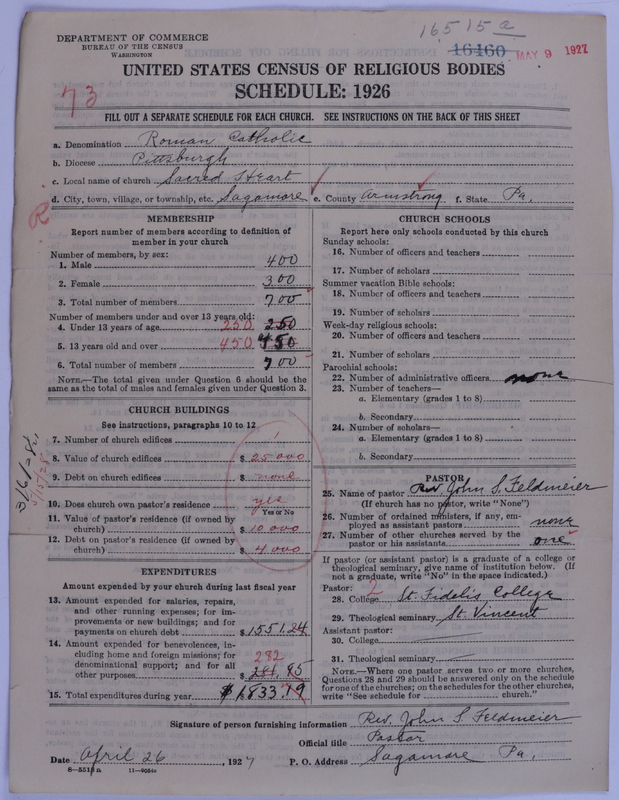 16515a
DEPARTMENT OF COMMERCE
BUREAU OF THE CENSUS
WASHINGTON
16460
MAY 9 1927
UNITED STATES CENSUS OF RELIGIOUS BODIES
SCHEDULE: 1926
73
FILL OUT A SEPARATE SCHEDULE FOR EACH CHURCH. SEE INSTRUCTIONS ON THE BACK OF THIS SHEET
a. Denomination Roman Catholic
b. Diocese Pittsburgh
c. Local name of church Sacred Heart
d. City, town, village, or township, etc. Sagamore e. County Armstrong f. State Pa.
R
MEMBERSHIP
Report number of members according to definition of
member in your church
Number of members, by sex:
1. Male 400
2. Female 300
3. Total number of members 700
Number of members under and over 13 years old:
4. Under 13 years of age 250 250
5. 13 years old and over 450 450
6. Total number of members 700
NOTE.—The total given under Question 6 should be the
same as the total of males and females given under Question 3.
CHURCH BUILDINGS
See instructions, paragraphs 10 to 12
7. Number of church edifices 1
8. Value of church edifices $ 25000
9. Debt on church edifices $ none
10. Does church own pastor's residence yes
Yes or No
11. Value of pastor's residence (if owned by
church) $ 10000
12. Debt on pastor's residence (if owned by
church) $ 4000
3/6/28
EXPENDITURES
Amount expended by your church during last fiscal year
13. Amount expended for salaries, repairs,
and other running expenses; for im-
provements or new buildings; and for
payments on church debt $ 1551 24
14. Amount expended for benevolences, in-
cluding home and foreign missions; for
denominational support; and for all
other purposes 282 $ 281,95
15. Total expenditures during year $ 1833.19
CHURCH SCHOOLS
Report here only schools conducted by this church
Sunday schools:
16. Number of officers and teachers
17. Number of scholars
Summer vacation Bible schools:
18. Number of officers and teachers
19. Number of scholars
Week-day religious schools:
20. Number of officers and teachers
21. Number of scholars
Parochial schools:
22. Number of administrative officers none
23. Number of teachers—
a. Elementary (grades 1 to 8)
b. Secondary
24. Number of scholars—
a. Elementary (grades 1 to 8)
b. Secondary
PASTOR
25. Name of pastor Rev. John S. Feldmeier
(If church has no pastor, write "None")
26. Number of ordained ministers, if any, em-
ployed as assistant pastors none
27. Number of other churches served by the
pastor or his assistants one
If pastor (or assistant pastor) is a graduate of a college or
theological seminary, give name of institution below. (If
not a graduate, write "No" in the space indicated.)
Pastor: 2
28. College St. Fidelis College
29. Theological seminary St. Vincent
Assistant pastor:
30. College
31. Theological seminary
NOTE.—Where one pastor serves two or more churches,
Questions 28 and 29 should be answered only on the schedule
for one of the churches; on the schedules for the other churches,
write "See schedule for church."
Signature of person furnishing information Rev. John S Feldmeier
Official title Pastor
Date April 26, 1927 P. O. Address Sagamore Pa.
8—551a 11—9054a